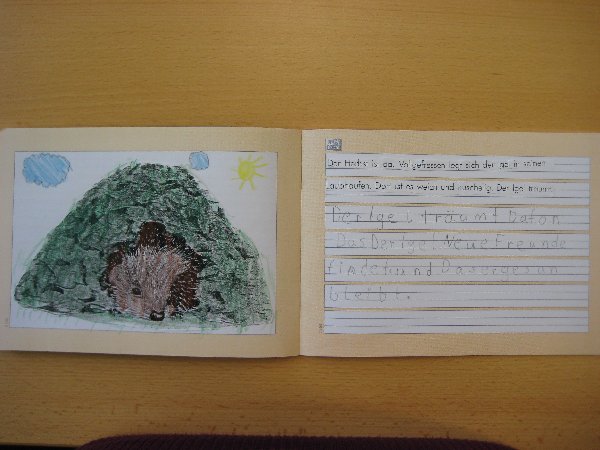 Der Herbst ist da. Vollgefressen legt sich der Igel in seinen
Laubhaufen. Dort ist es weich und kuschelig. Der Igel träumt:
Der Igel träumt Dafon
Das Der Igel Neue Freunde
finden und Das er gesun
bleibt.